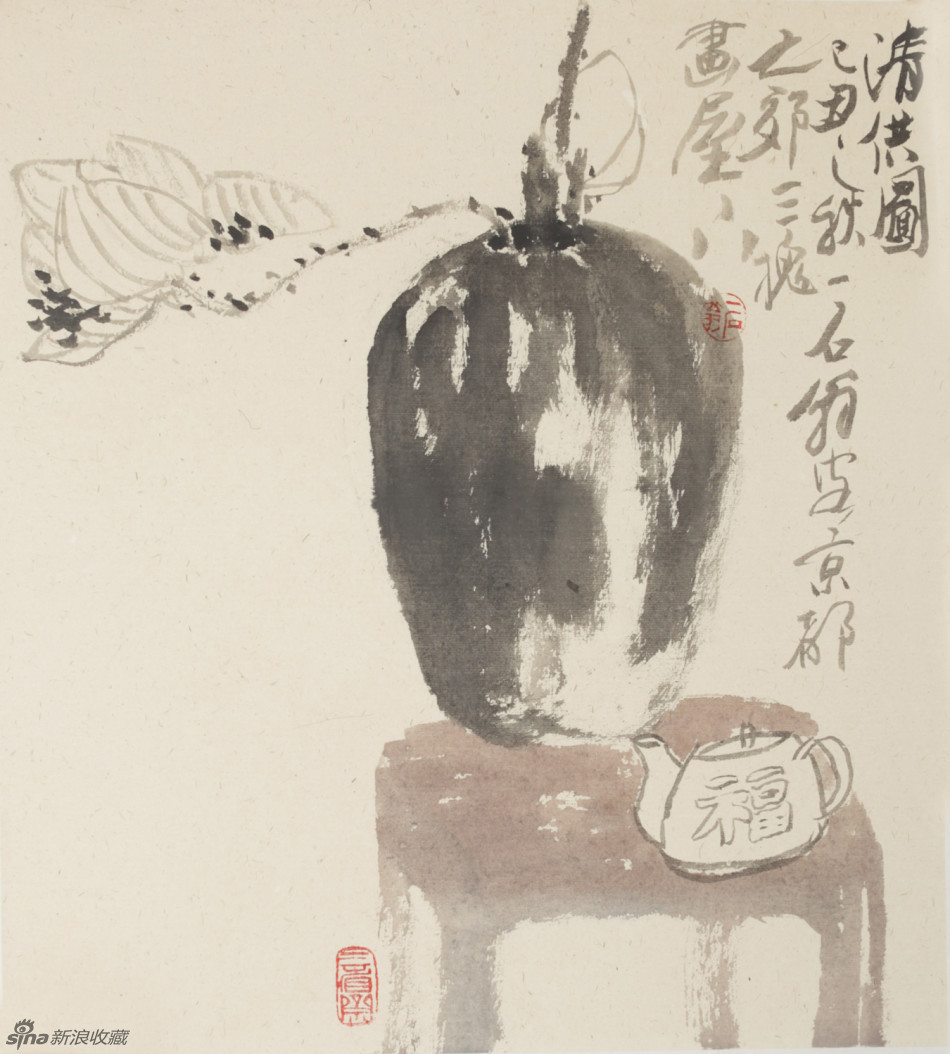 清供圖
己丑之秋一石翁京都
之郊三槐
畫屋
福
sina新浪收藏